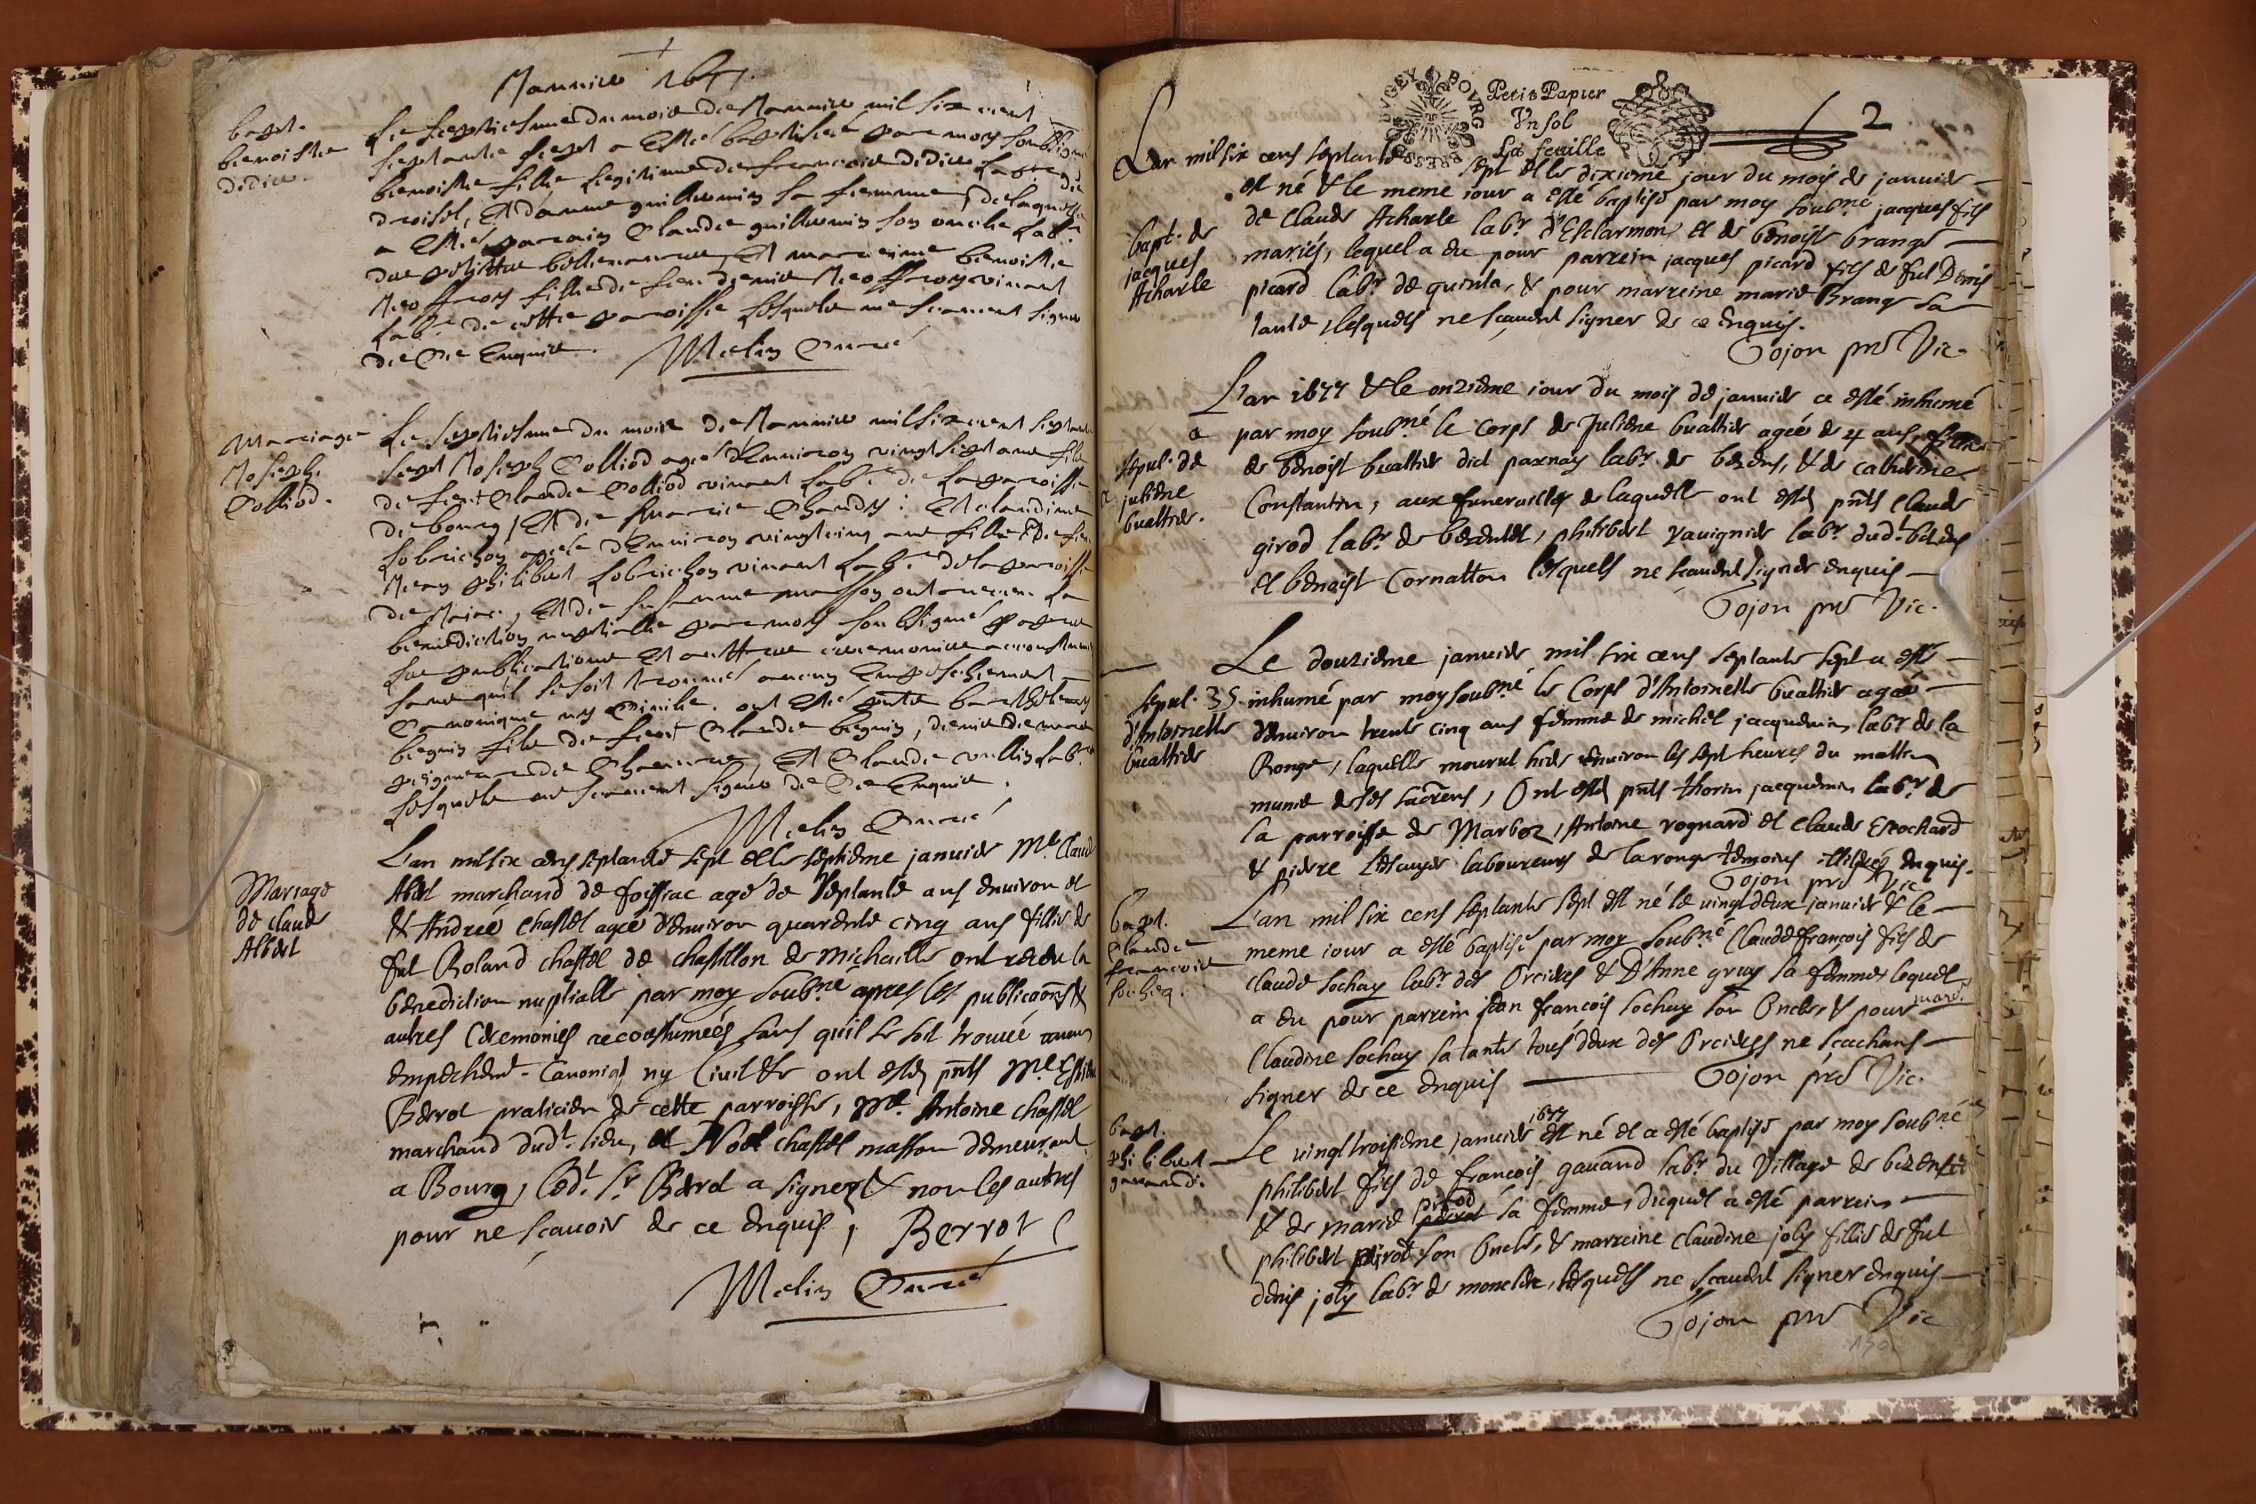 Janvier 1677
bapt.
benoiste
didier.
Le septiesme du mois de Janvier mil six cent
septante sept a esté baptisée par moy soubsigné
benoiste fille legitime de francois didier lab.
droisel, et d'anne guilliomin sa femme, de laquelle
a esté parrain Claude guilliomin son oncle lab.
et marreine benoiste
fille de feu denis vivant
lab. de cette parroisse lesquels ne scavent signer
de ce Enquis.
Melin Curé
Mariage
Joseph
Colliod.
Le septiesme du mois de Janvier mil six cent septante
sept Joseph Colliod agé d'Environ vingt sept ans fils
de feu Claude Colliod vivant lab. de la parroisse
de bourg, Et de Chandy: Et claudine
lobrichon agée d'Environ vingt cinq ans fille de feu
Jean philibert lobrichon vivant lab. de la parroisse
de, Et de susanne masson ont receu la
benediction nuptialle par moy soubsigné apres
les publications Et aultres ceremonies accoustumées
sans quil se soit trouvé aucun Empeschement
Canonique ny Civile. ont esté pnts barthelemy
beguin fils de feu Claude beguin, denis
Et Claude vullin lab.
lesquels ne scavent signer de ce Enquis.
Melin Curé
Mariage
de claude
Albert
L'an mil six cens septante sept et le septieme janvier Mr. Claude
Albert marchand de foissiac agé de septante ans environ et
& Andree Chastel agée d'environ quarente cinq ans fillie de
fut Roland chastel de chastillon de Michaille ont receu la
benediction nuptialle par moy soubné apres les publicaons &
autres Ceremonies accoustumées sans qu'il se soit trouvé aucun
empechemt. Canoniq ny Civil & ont estés pnts Me Estiene
Berrot praticien de cette parroisse, Me. Antoine chastel
marchand dudt. lieu, et Noel chastel masson demeurant
a Bourg, ledt. Sr Berrot a signez & non les autres
pour ne scavoir de ce enquis, Berrot
Melin Curé
BUGEY BOURG BRESSE
Petit Papier
Vn sol
La feuille
2
bapt. de
jacques
Acharle
L'an mil six cens septante sept et le dixieme jour du mois de janvier
est né & le meme iour a esté baptisé par moy soubné jacques fils
de Claude Acharle labr d'Esclarmon et de benoiste brange
mariés, lequel a eu pour parrein jacques picard fils de fut Denis
picard labr. de quinta, & pour marreine marie Brange sa
tante, lesquels ne scavent signer de ce enquis.
Gojon pre Vic.
Sepul. de
juliene
buathier.
L'an 1677 & le onzieme iour du mois de janvier a esté inhumé
par moy soubné le Corps de Juliene buathier agée de 4 ans, fillie
de benoist buathier dict parnay labr. de bezens, & de catherine
Constantin, aux funerailles de laquelle ont estes pnts Claude
girod labr. de bezentet, philibert vavignier labr. dudt. bezens
et benoist Cornatton lesquels ne scavent signer enquis
Gojon pre Vic.
Sepul. 35
d'Antoinette
buathier
Le douzieme janvier mil six cens septante sept a esté
inhumé par moy soubné le Corps d'Antoinette buathier agée
d'environ trente cinq ans femme de michel jacquemin labr. de la
Ronge, laquelle mourut hier environ les sept heures du mattin
munie de ses sacrens, Ont estes pnts thorin jacquemin labr. de
la parroisse de Marboz, Antoine rognard et Claude Erochard
& pierre laboureurs de la ronge temoins illiterés enquis.
Gojon pre Vic
bapt.
Claude
francois
sochay.
L'an mil six cens septante sept est né le vingt deux janvier & le
meme iour a esté baptisé par moy soubné Claude francois fils de
Claude sochay labr. des Orcieres & D'Anne gruy sa femme, lequel
a eu pour parrein jean francois sochay son Oncle, & pour mar.
Claudine sochay sa tante tous deux des Orcieres ne scachans
signer de ce enquis Gojon pre Vic.
bapt.
philibert
gavand.
Le vingt troisieme janvier 1677 est né et a esté baptisé par moy soubné
philibert fils de francois gavand labr. du Village de bezentet
& de marie girod sa femme, duquel a esté parrein
philibert girod son Oncle, & marreine Claudine joly fillie de fut
denis joly labr. de moncele, lesquels ne scavent signer enquis
Gojon pre Vic